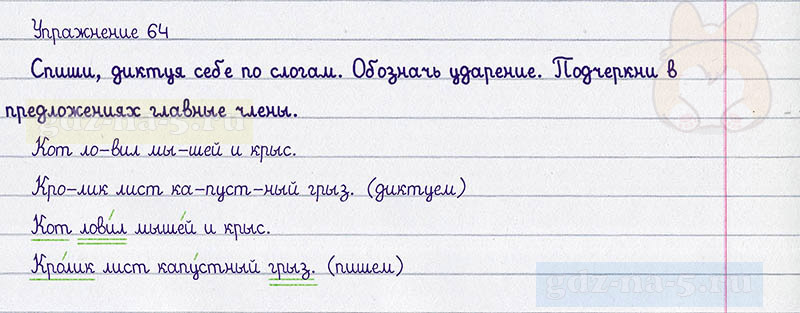 Упражнение 64
Спиши, диктуя себе по слогам. Обозначь ударение. Подчеркни в
предложениях главные члены.
gdz-na-5.ru
Кот ло-вил мы-шей и крыс.
Кро-лик лист ка-пуст-ный грыз. (диктуем)
Кот лови́л мыше́й и крыс.
Кро́лик лист капу́стный грыз. (пишем)
gdz-na-5.ru